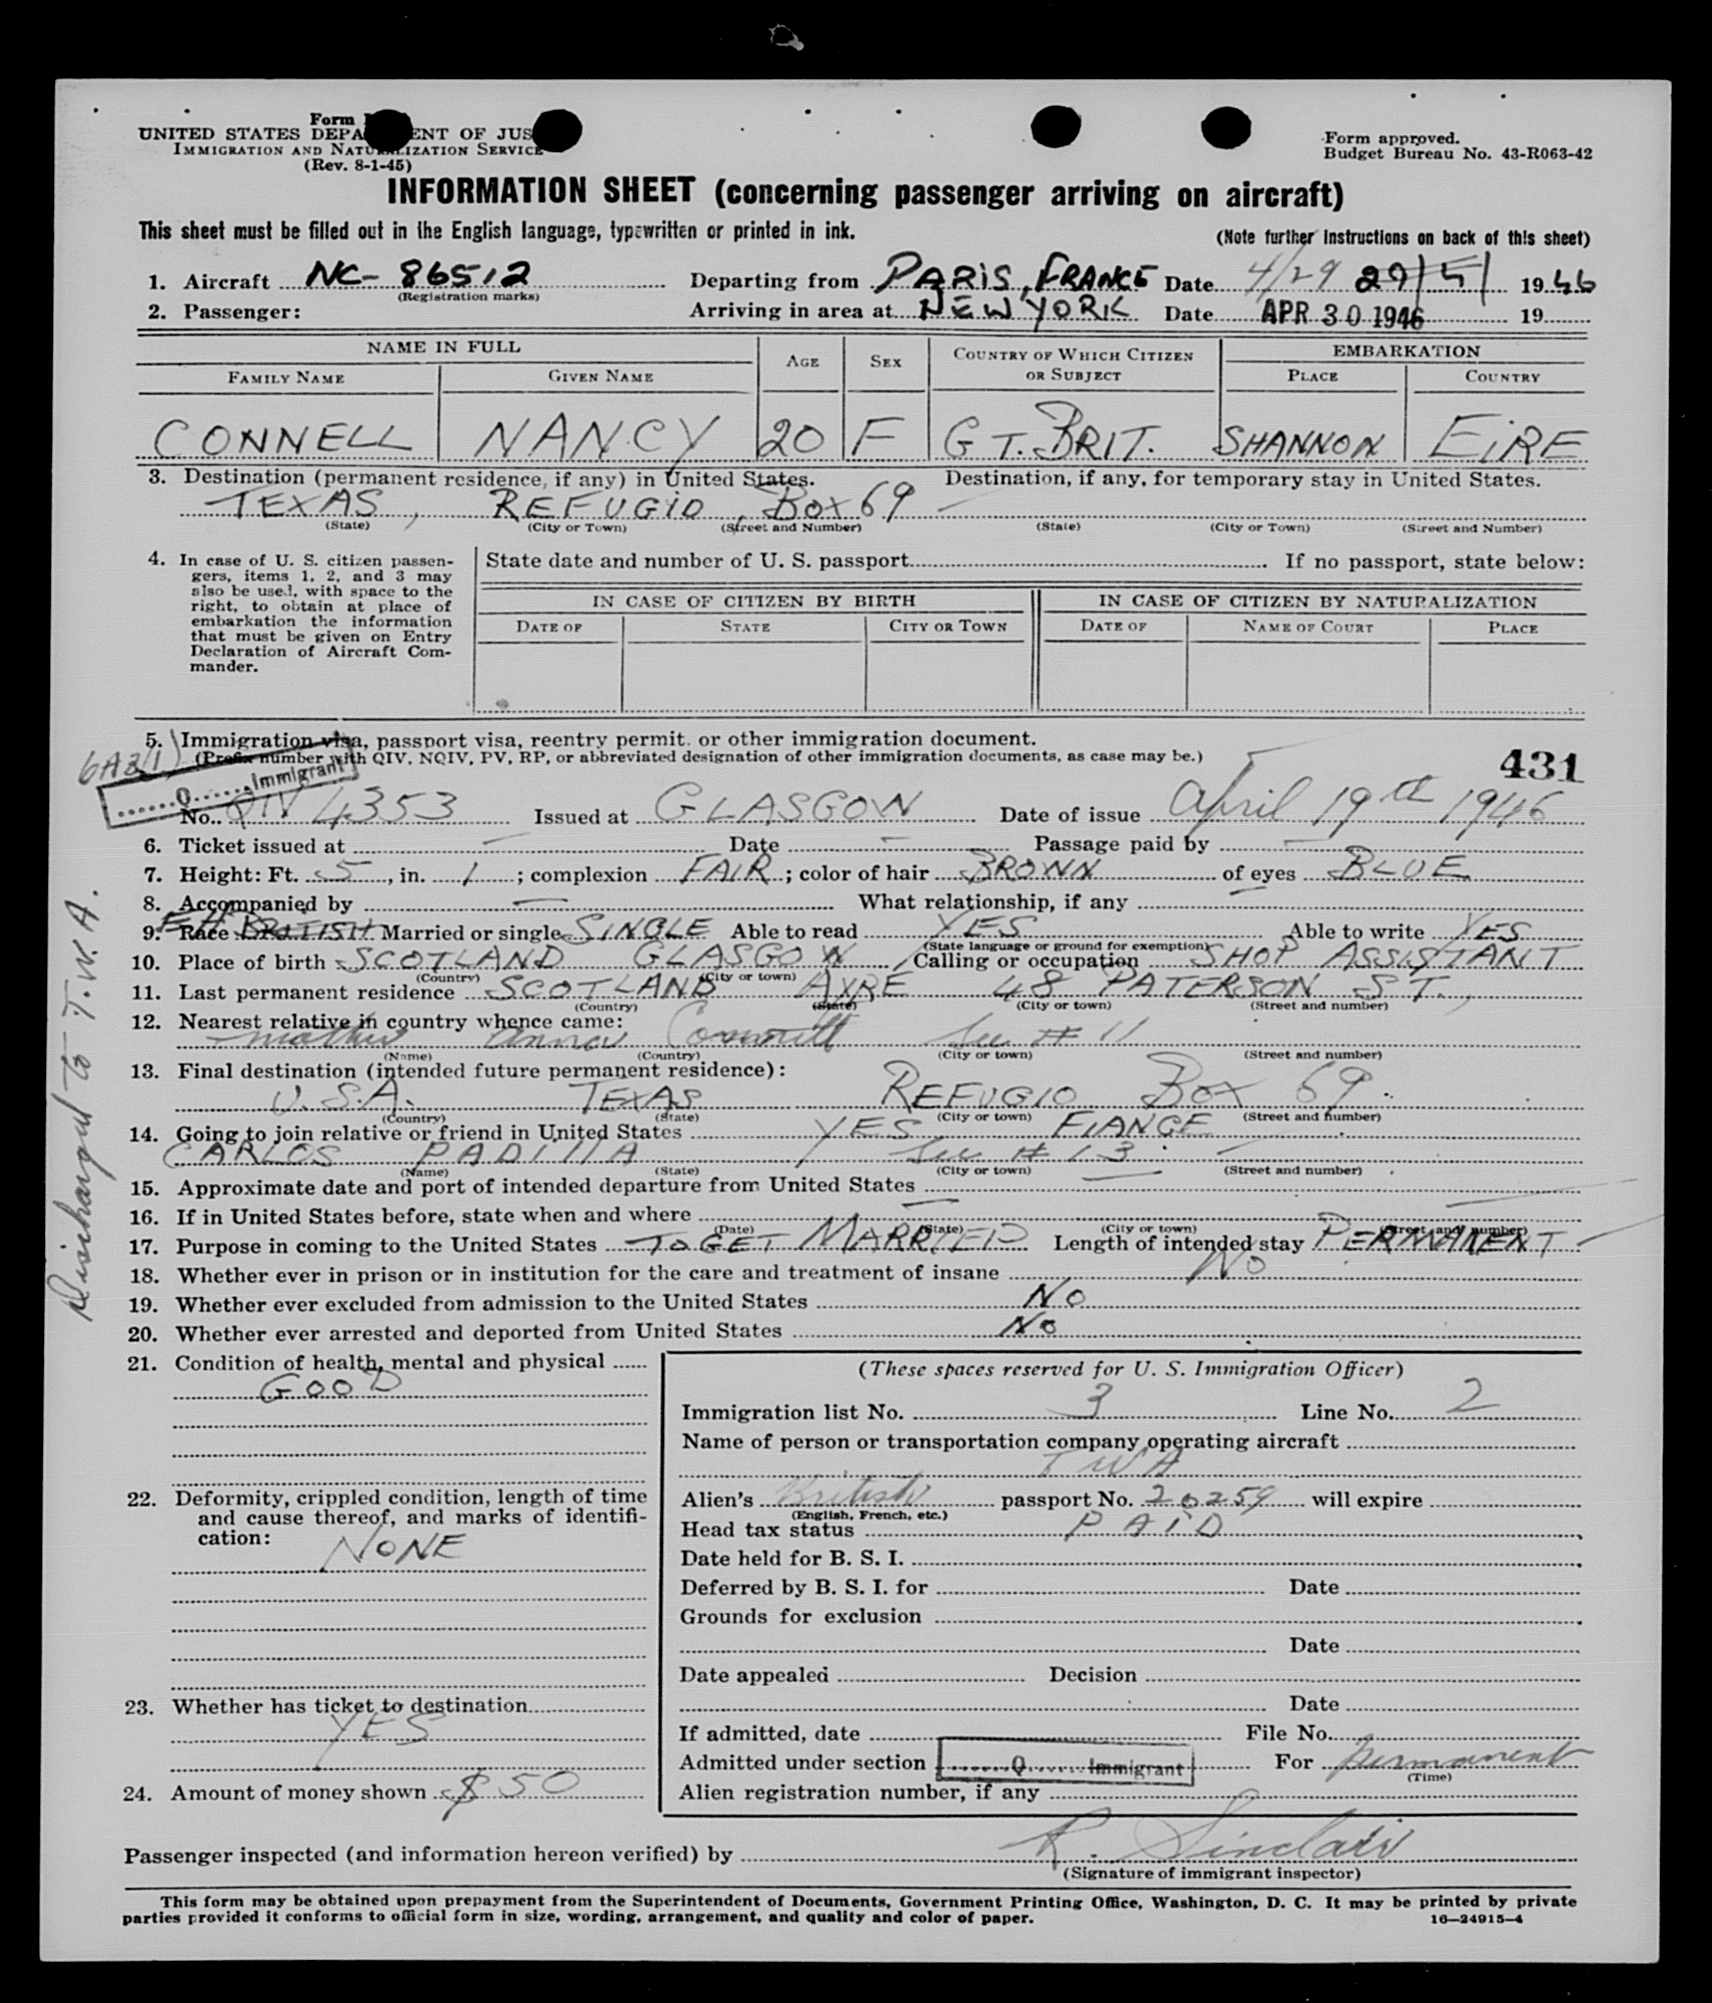 Form
UNITED STATES DEPA ENT OF JUS
IMMIGRATION AND NATURALIZATION SERVICE
(Rev. 8-1-45)
Form approved.
Budget Bureau No. 43-R063-42
INFORMATION SHEET (concerning passenger arriving on aircraft)
This sheet must be filled out in the English language, typewritten or printed in ink.
(Note further instructions on back of this sheet)
1. Aircraft NC-86512 Departing from PARIS, FRANCE Date 4/29 29/5/ 1946
(Registration marks)
2. Passenger: Arriving in area at NEW YORK Date APR 30 1946 19
NAME IN FULL AGE SEX COUNTRY OF WHICH CITIZEN OR SUBJECT EMBARKATION
FAMILY NAME GIVEN NAME PLACE COUNTRY
CONNELL NANCY 20 F GT. BRIT. SHANNON EIRE
3. Destination (permanent residence, if any) in United States. Destination, if any, for temporary stay in United States.
TEXAS, REFUGIO, BOX 69 —
(State) (City or Town) (Street and Number) (State) (City or Town) (Street and Number)
4. In case of U. S. citizen passengers, items 1, 2, and 3 may also be used, with space to the right, to obtain at place of embarkation the information that must be given on Entry Declaration of Aircraft Commander.
State date and number of U. S. passport If no passport, state below:
IN CASE OF CITIZEN BY BIRTH IN CASE OF CITIZEN BY NATURALIZATION
DATE OF STATE CITY OR TOWN DATE OF NAME OF COURT PLACE
5. Immigration visa, passport visa, reentry permit, or other immigration document.
(Prefix number with QIV, NQIV, PV, RP, or abbreviated designation of other immigration documents, as case may be.)
431
6A3(1)
Q Immigrant
No. QIV 4353 Issued at GLASGOW Date of issue April 19th 1946
6. Ticket issued at — Date — Passage paid by —
7. Height: Ft. 5, in. 1; complexion FAIR; color of hair BROWN of eyes BLUE
8. Accompanied by — What relationship, if any —
9. Race BRITISH Married or single SINGLE Able to read YES Able to write YES
(State language or ground for exemption)
10. Place of birth SCOTLAND GLASGOW Calling or occupation SHOP ASSISTANT
(Country) (City or town)
11. Last permanent residence SCOTLAND AYRE 48 PATERSON ST.,
(Country) (State) (City or town) (Street and number)
12. Nearest relative in country whence came:
mother Anna Connell See #11
(Name) (Country) (City or town) (Street and number)
13. Final destination (intended future permanent residence):
U.S.A. TEXAS REFUGIO BOX 69.
(Country) (State) (City or town) (Street and number)
14. Going to join relative or friend in United States YES FIANCE
CARLOS PADILLA See #13
(Name) (State) (City or town) (Street and number)
15. Approximate date and port of intended departure from United States —
16. If in United States before, state when and where —
(Date) (State) (City or town) (Street and number)
17. Purpose in coming to the United States TO GET MARRIED Length of intended stay PERMANENT
18. Whether ever in prison or in institution for the care and treatment of insane NO
19. Whether ever excluded from admission to the United States NO
20. Whether ever arrested and deported from United States NO
21. Condition of health, mental and physical
GOOD
22. Deformity, crippled condition, length of time and cause thereof, and marks of identification:
NONE
23. Whether has ticket to destination
YES
24. Amount of money shown $50
(These spaces reserved for U. S. Immigration Officer)
Immigration list No. 3 Line No. 2
Name of person or transportation company operating aircraft
TWA
Alien's British passport No. 20259 will expire
(English, French, etc.)
Head tax status PAID
Date held for B. S. I.
Deferred by B. S. I. for Date
Grounds for exclusion
Date
Date appealed Decision
Date
If admitted, date File No.
Admitted under section Q Immigrant For permanent
(Time)
Alien registration number, if any
Passenger inspected (and information hereon verified) by R. Sinclair
(Signature of immigrant inspector)
This form may be obtained upon prepayment from the Superintendent of Documents, Government Printing Office, Washington, D. C. It may be printed by private
parties provided it conforms to official form in size, wording, arrangement, and quality and color of paper.
16—24915-4
Discharged to T.W.A.